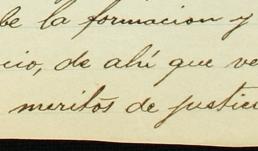 be la formacion y
cio, de ahí que ve
meritos de justici